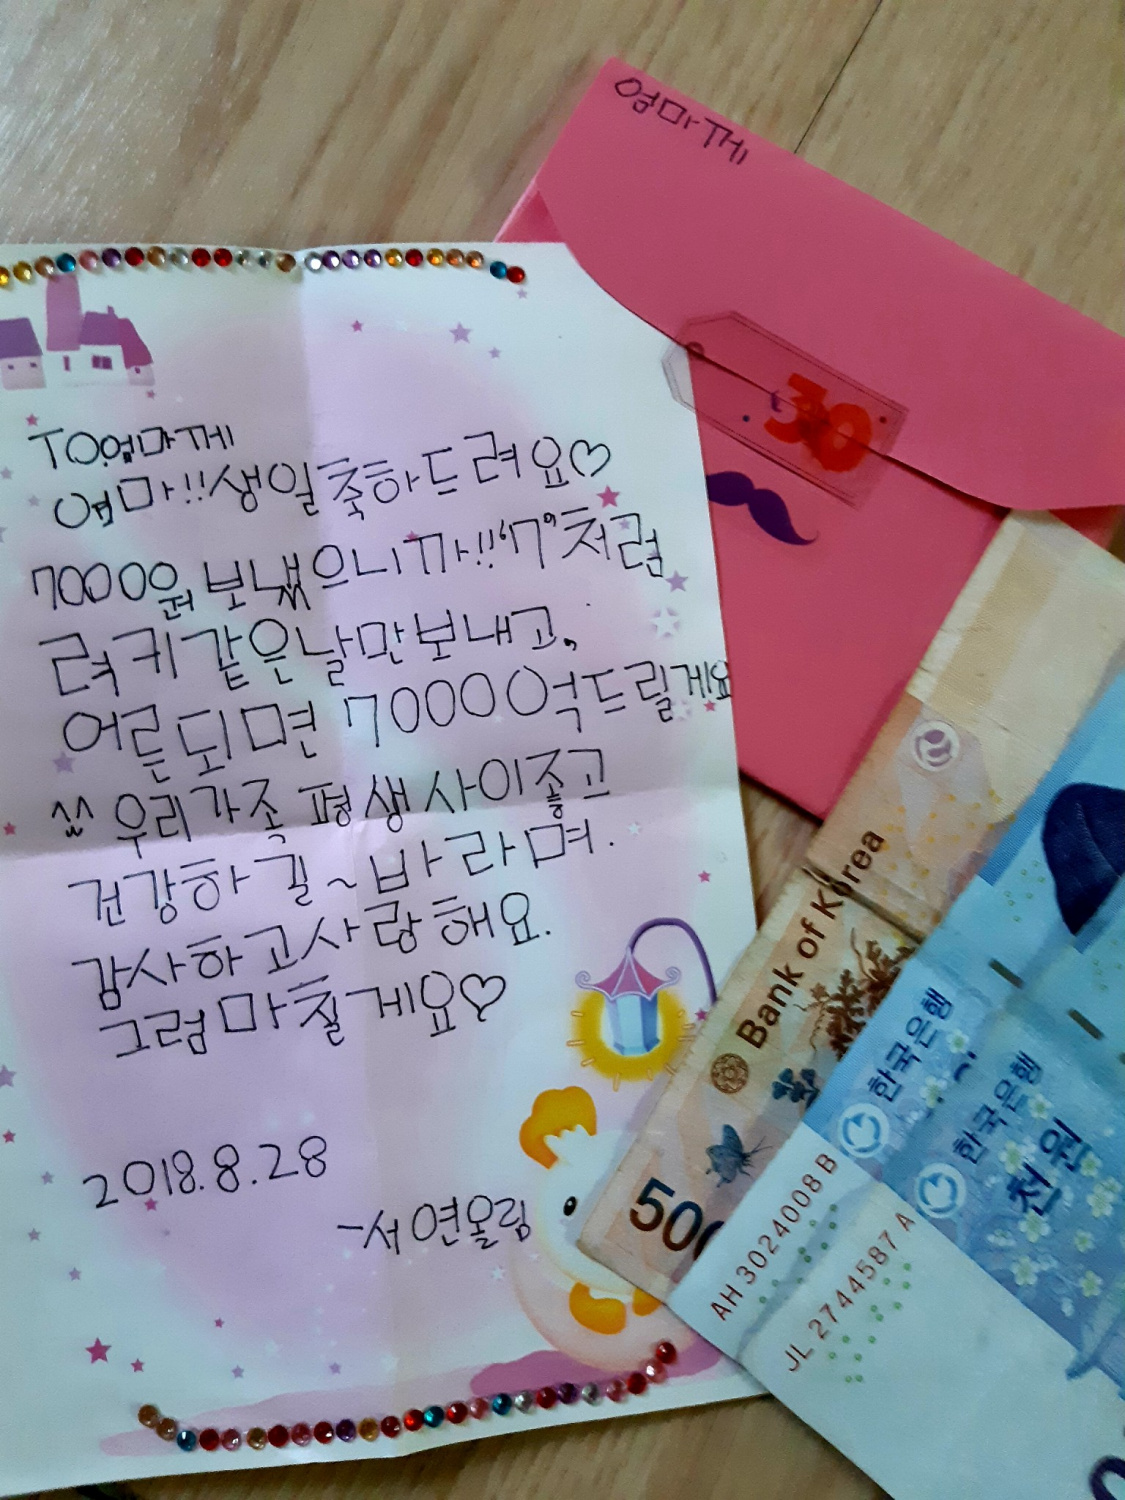 엄마께
30
TO.엄마께
엄마!!생일축하드려요♡
7000원 보냈으니까!!'7'처럼
럭키같은날만보내고,
어른되면 7000억드릴게요
^^ 우리가족 평생사이좋고
건강하길~바라며.
감사하고사랑해요.
그럼마칠게요♡
2018.8.28
-서연올림
Bank of Korea
500
한국은행
한국은행
천원
AH3024008B
JL2744587A